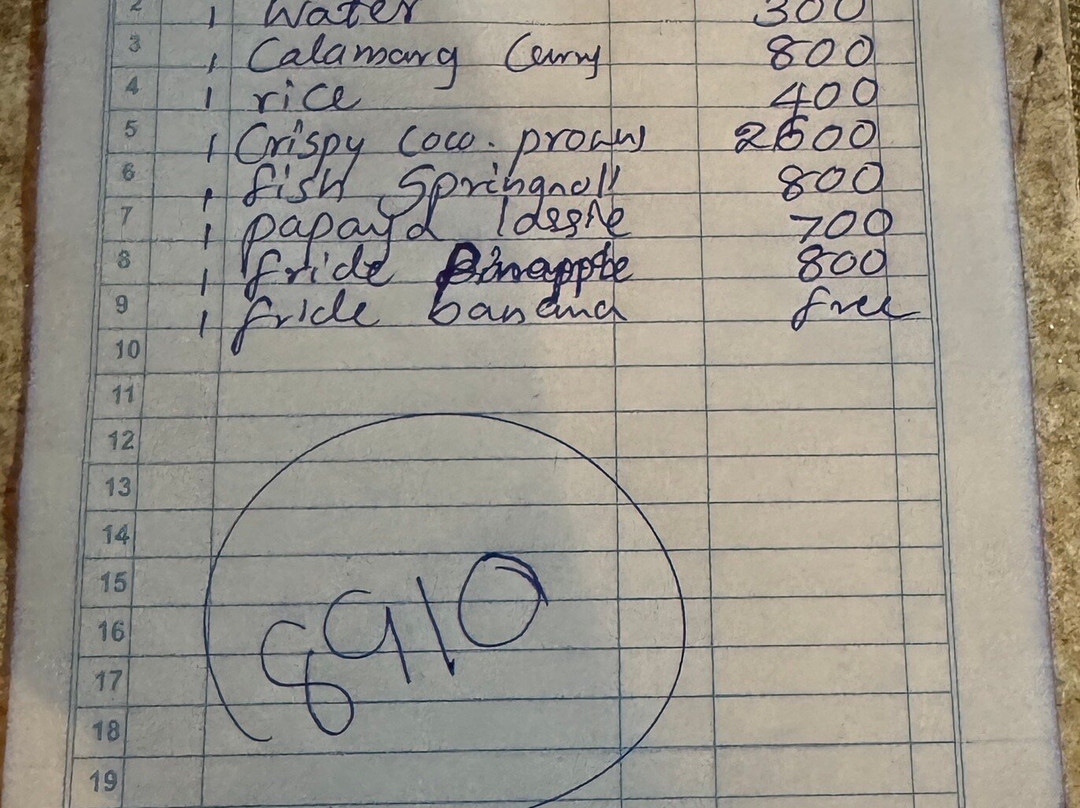 2 1 Water 300
3 1 Calamarg Curry 800
4 1 rice 400
5 1 Crispy Coco. prowns 2500
6 1 fish Springroll 800
7 1 papaya lassie 700
8 1 fride Pinapple 800
9 1 fride banana free
10
11
12
13
14
15
16
17
18
19
8910